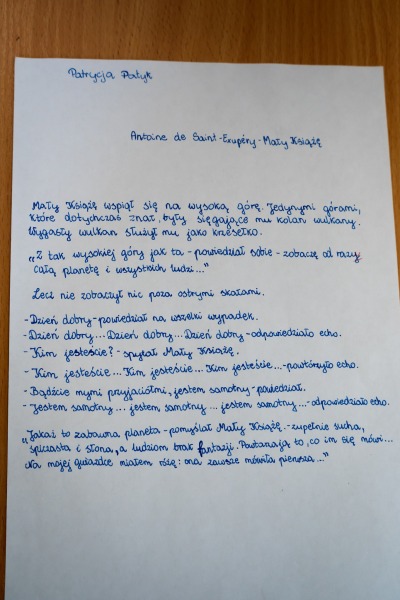 Patrycja Patyk
Antoine de Saint-Exupéry-Mały Książę
Mały Książę wspiął się na wysoką górę. Jedynymi górami,
które dotychczas znał, były sięgające mu kolan wulkany.
Wygasły wulkan służył mu jako krzesełko.
„Z tak wysokiej góry jak ta - powiedział sobie - zobaczę od razu
całą planetę i wszystkich ludzi..."
Lecz nie zobaczył nic poza ostrymi skałami.
- Dzień dobry - powiedział na wszelki wypadek.
- Dzień dobry... Dzień dobry... Dzień dobry - odpowiedziało echo.
- Kim jesteście? - spytał Mały Książę.
- Kim jesteście... Kim jesteście... Kim jesteście... - powtórzyło echo.
- Bądźcie mymi przyjaciółmi, jestem samotny - powiedział.
- Jestem samotny... jestem samotny... jestem samotny... - odpowiedziało echo.
„Jakaż to zabawna planeta - pomyślał Mały Książę. - zupełnie sucha,
spiczasta i słona, a ludziom brak fantazji. Powtarzają to, co im się mówi...
Na mojej gwiazdce miałem różę: ona zawsze mówiła pierwsza..."